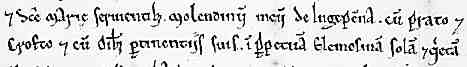 ⁊ Sc̄e Marie seruientib; molendinū meū de lugepēna . cū p̄rato ⁊
crofto ⁊ cū oīb; ꝑtinentijs suis . ī ꝑpetuā Elemosinā solā ⁊ q̇etā